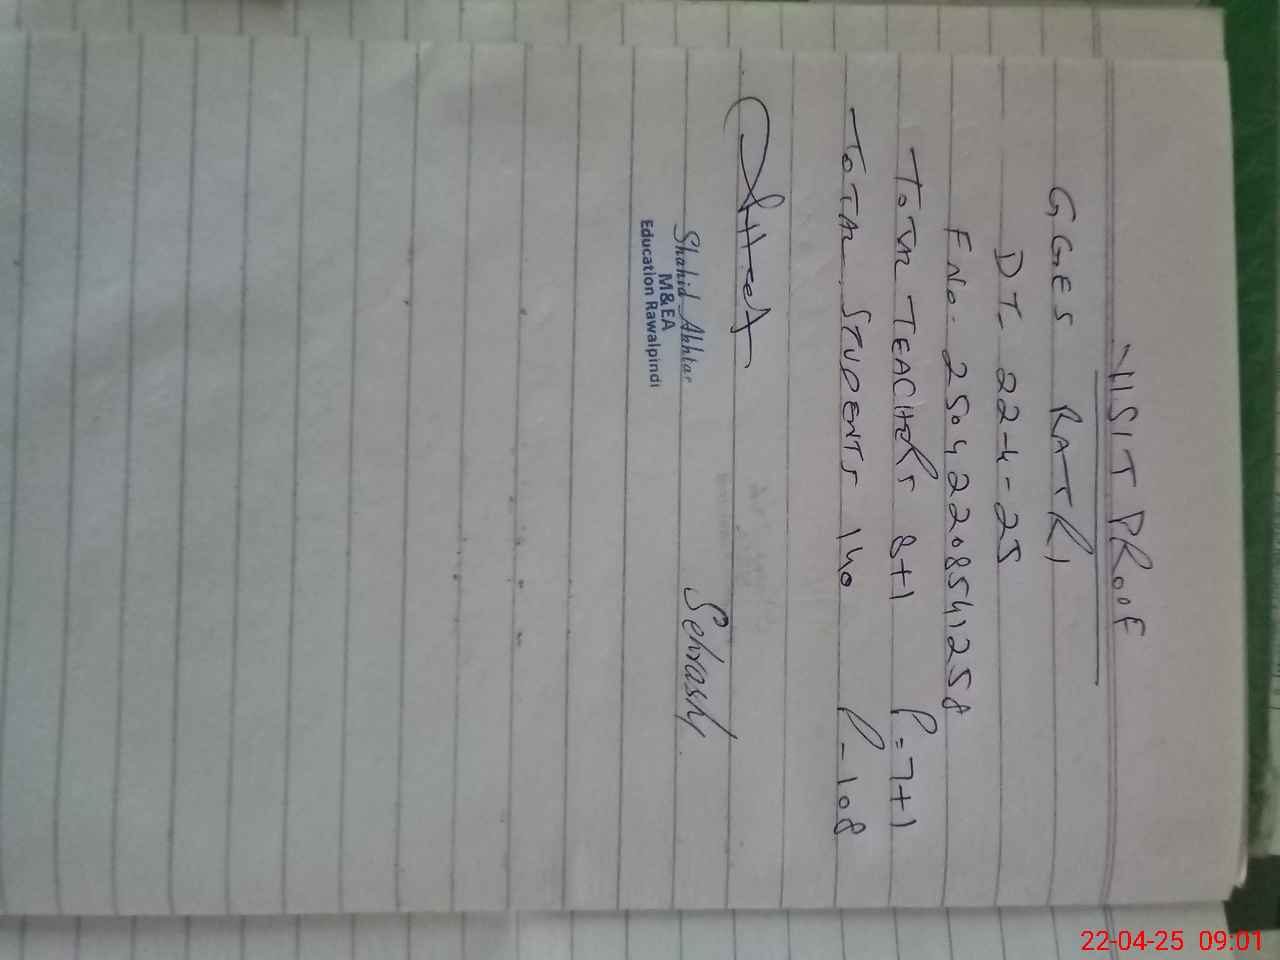 VISIT PROOF
GGES RATTRI
DT- 22-4-25
F No- 25042208541258
TOTAL TEACHERS 8+1 P=7+1
TOTAL STUDENTS 140 P-108
Sehrash
Shahid Akhtar
M&EA
Education Rawalpindi
22-04-25 09:01